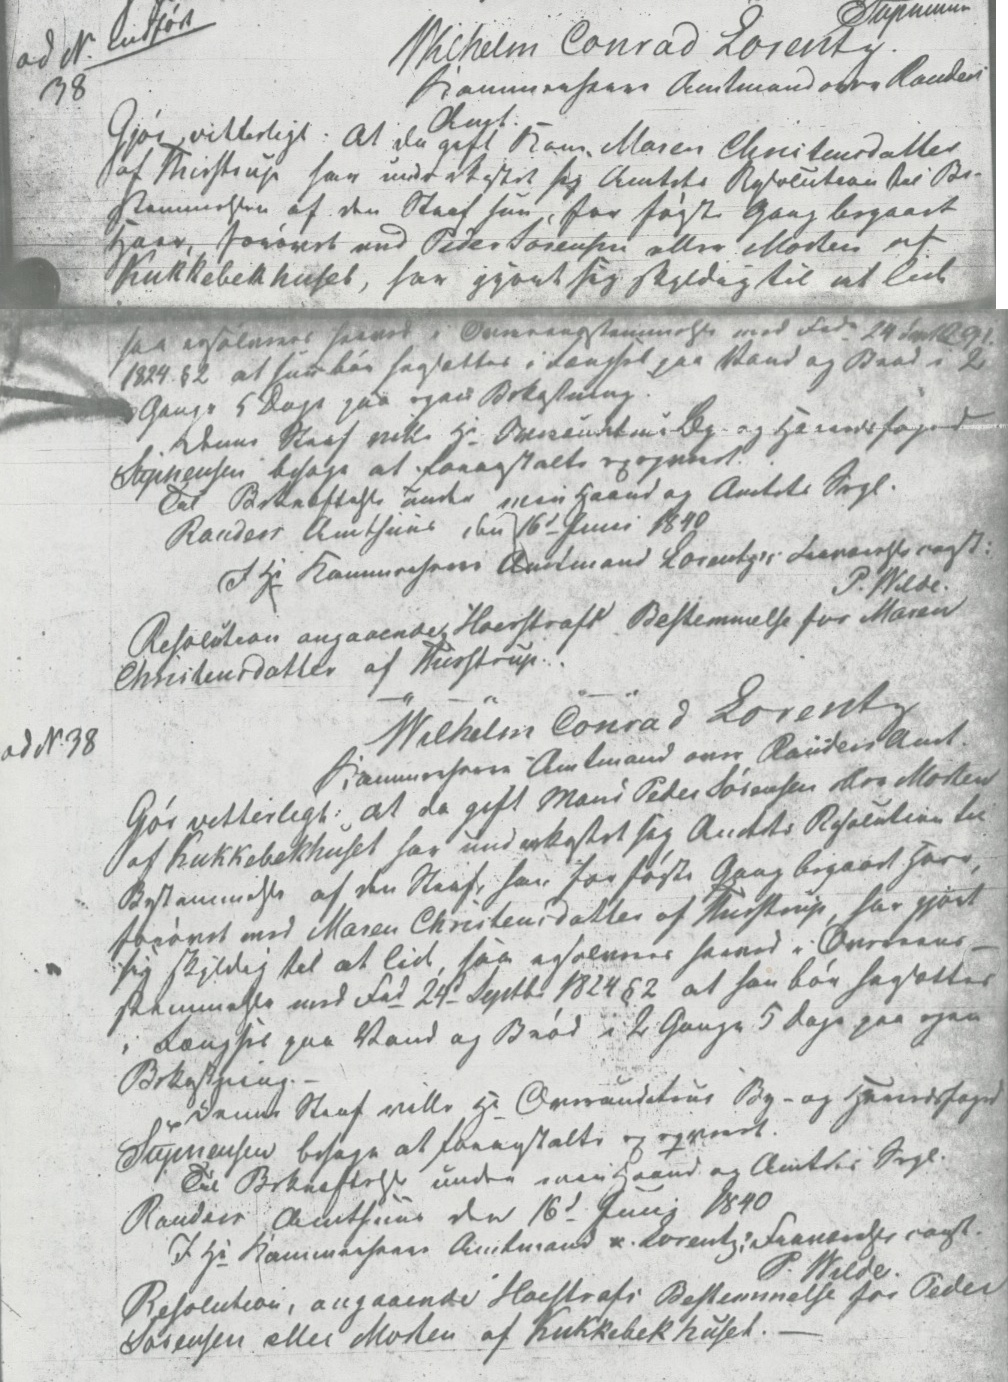 indført
ad N.
38
Wilhelm Conrad Lorentz.
Kammerherre Amtmand over Randers
Amt.
Gjör vitterligt: At da gift Kone, Maren Christensdatter
af Thirstrup har underkastet sig Amtets Resolution til Be-
stemmelsen af den Straf hun, for første Gang begaaet
Hoer, forövet med Peder Sørensen eller Morten af
Kukkebekhuset, har gjort sig skyldig til at lide
saa resolveres herved i Overeensstemmelse med Frdn 24 Septbr
1824 § 2 at hun bör hensættes i Fængsel paa Vand og Bröd i 2
Gange 5 Dage paa egen Bekostning.
Denne Straf ville Hr Overauditeur By- og Herredsfoged
behage at foranstalte exeqveret.
Til Bekræftelse under min Haand og Amtets Segl.
Randers Amthuus, den 16d Juni 1840
I Hr Kammerherre Amtmand Lorentz's Fraværelse const:
P. Wilde.
Resolution angaaende Hoerstrafs Bestemmelse for Maren
Christensdatter af Thirstrup.
ad N. 38
Wilhelm Conrad Lorentz
Kammerherre Amtmand over Randers Amt.
Gör vetterlegt: At da gift Mand Peder Sörensen eller Morten
af Kukkebekhuset har underkastet sig Amtets Resolution til
Bestemmelse af den Straf, han for første Gang begaaet Hoer,
forövet med Maren Christensdatter af Thirstrup, har gjort
sig skyldig til at lide, saa resolveres herved i Overeens-
stemmelse med Frd 24d Septbr 1824 § 2 at han bör hensættes
i Fængsel paa Vand og Bröd i 2 Gange 5 Dage paa egen
Bekostning.-
Denne Straf ville Hr Overauditeur By- og Herredsfoged
behage at foranstalte exeqveret.
Til Bekræftelse under min Haand og Amtets Segl.
Randers Amthuus den 16d Junij 1840
I Hr Kammerherre Amtmand v. Lorentz's Fraværelse const.
P. Wilde.
Resolution, angaaende Hoerstrafs Bestemmelse for Peder
Sörensen eller Morten af Kukkebekhuset. —